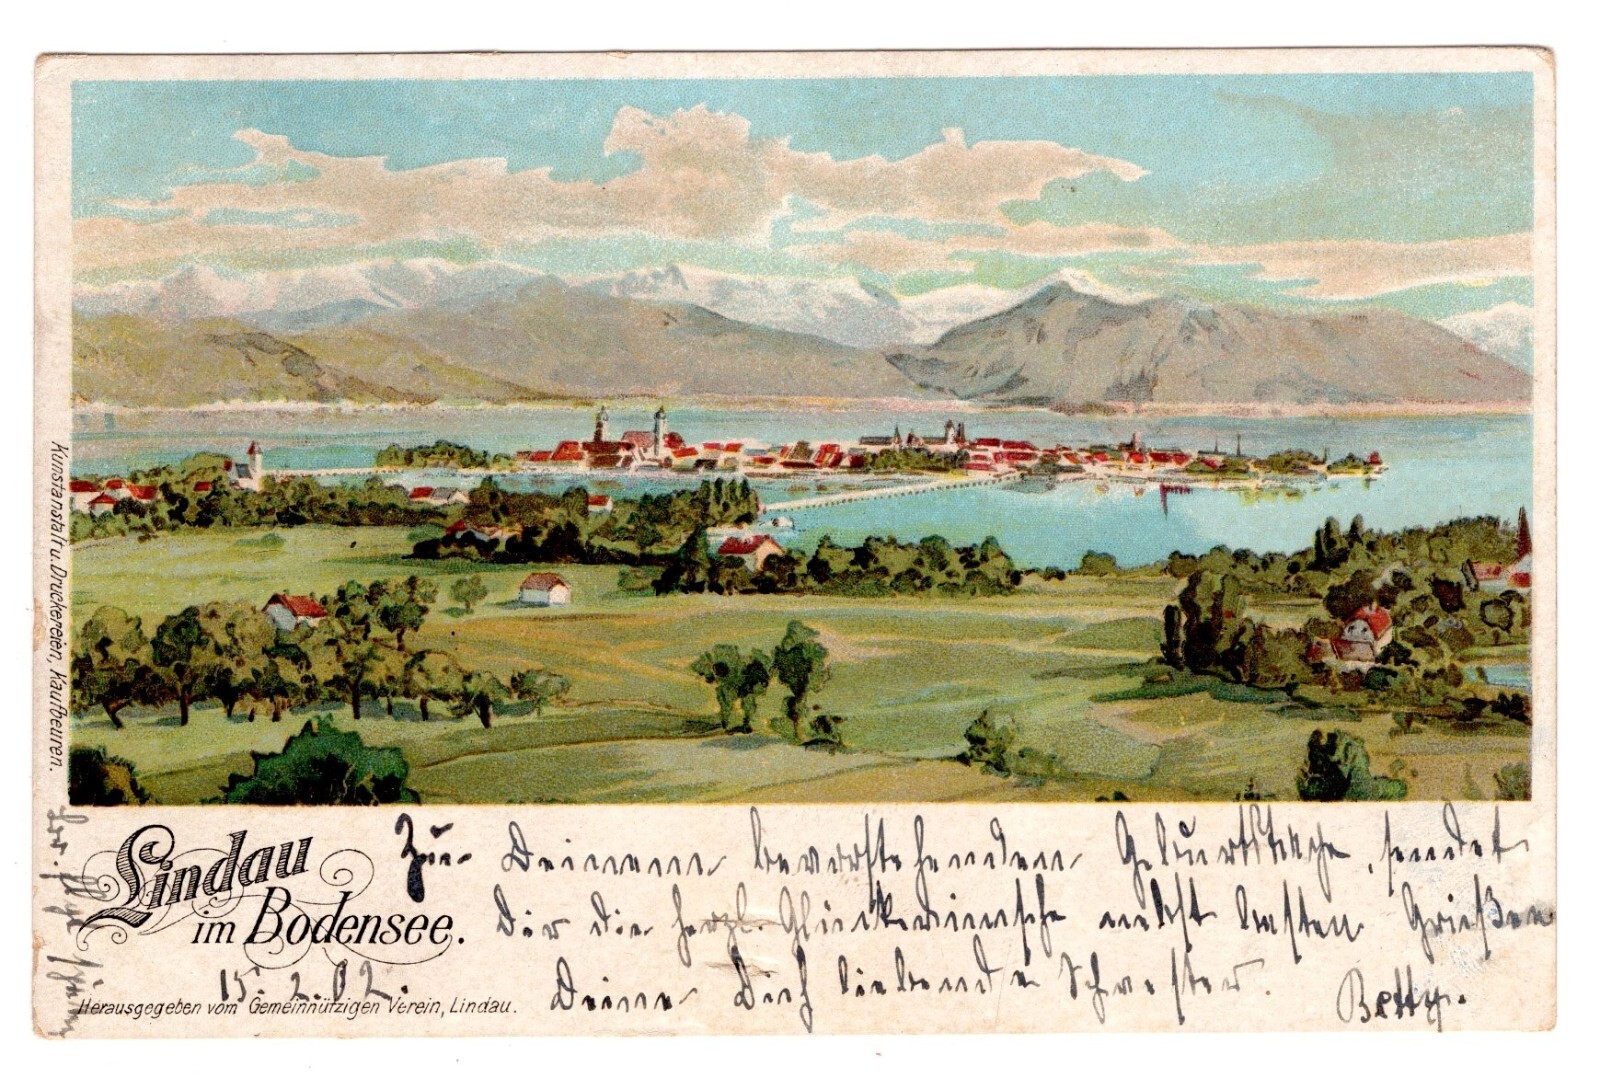 Kunstanstalt u. Druckereien, Kaufbeuren.
Lindau
im Bodensee.
Zu Deinem bevorstehenden Geburtstage, sendet
Dir die herzl. Glückwünsche nebst besten Grüßen
Deine Dich liebende Schwester. Betty.
15. 2. 02.
Herausgegeben vom Gemeinnützigen Verein, Lindau.